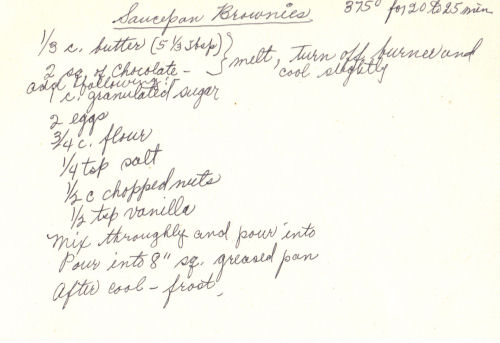 Saucepan Brownies 375° for 20 to 25 min
1/3 c. butter (5 1/3 tbsp)
2 sq. of Chocolate - } melt, turn off burner and cool slightly
add following:
1 c. granulated sugar
2 eggs
3/4 c. flour
1/4 tsp salt
1/2 c chopped nuts
1/2 tsp vanilla
Mix throughly and pour into
Pour into 8" sq. greased pan
After cool - frost.